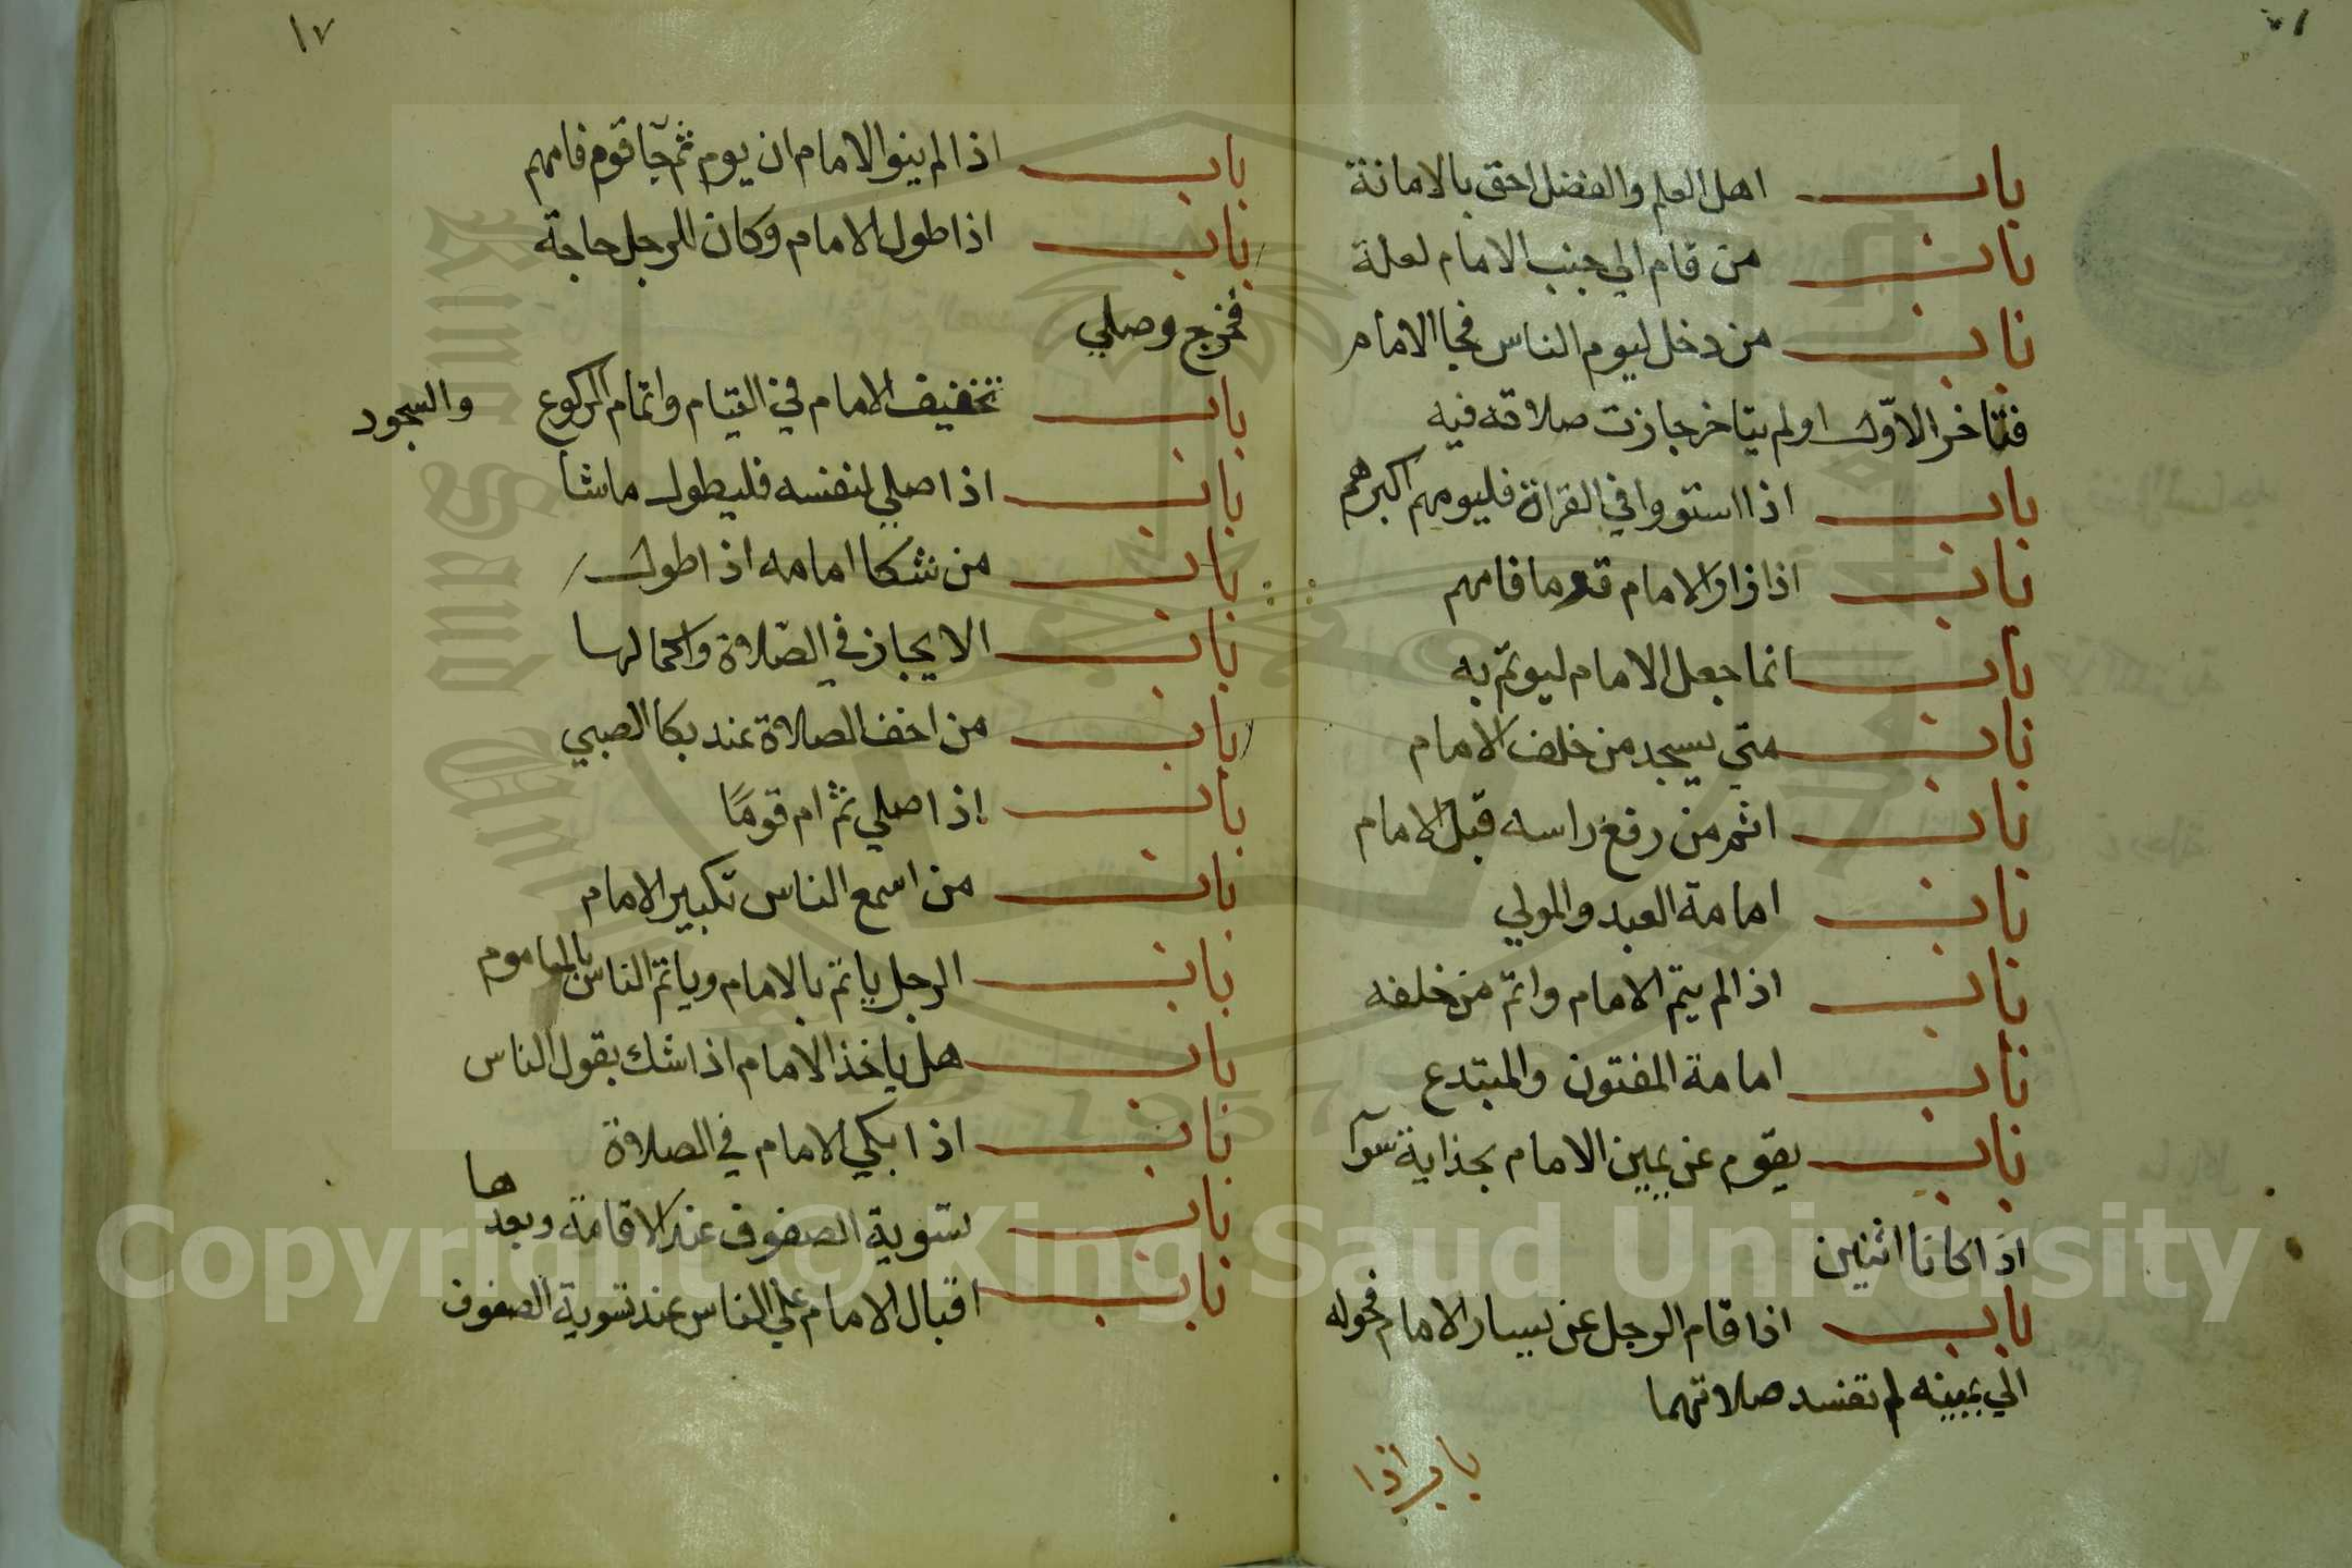 باب اهل العلم والفضل احق بالامانة
باب من قام الي جنب الامام لعلة
باب من دخل ليوم الناس فجا الامام
فتاخر الاوّل او لم يتاخر جازت صلاته فيه
باب اذا استووا في القراة فليومهم اكبرهم
باب اذا زار الامام قوما فامهم
باب انما جعل الامام ليوتمّ به
باب متي يسجد من خلف الامام
باب اثم من رفع راسه قبل الامام
باب امامة العبد والمولي
باب اذا لم يتم الامام واتمّ من خلفه
باب امامة المفتون والمبتدع
باب يقوم عن يمين الامام بحذاية سوآ
اذا كانا اثنين
باب اذا قام الرجل عن يسار الامام فحوله
الي يمينه لم تفسد صلاتهما
باب اذا
١٧
باب اذا لم ينو الامام ان يوم ثم جا قوم فامهم
باب اذا طول الامام وكان للرجل حاجة
فخرج وصلي
باب تخفيف الامام في القيام واتمام الركوع والسجود
باب اذا صلي لنفسه فليطول ماشا
باب من شكا امامه اذا طول
باب الايجاز في الصّلاة واكمالها
باب من اخف الصلاة عند بكا الصبي
باب اذا صلي ثم ام قومًا
باب من اسمع الناس تكبير الامام
باب الرجل ياتمّ بالامام وياتمّ الناس بالماموم
باب هل ياخذ الامام اذا شك بقول الناس
باب اذا بكي الامام في الصلاة
باب تسوية الصفوف عند الاقامة وبعدها
باب اقبال الامام علي الناس عند تسوية الصفوف
Copyright © King Saud University
1957